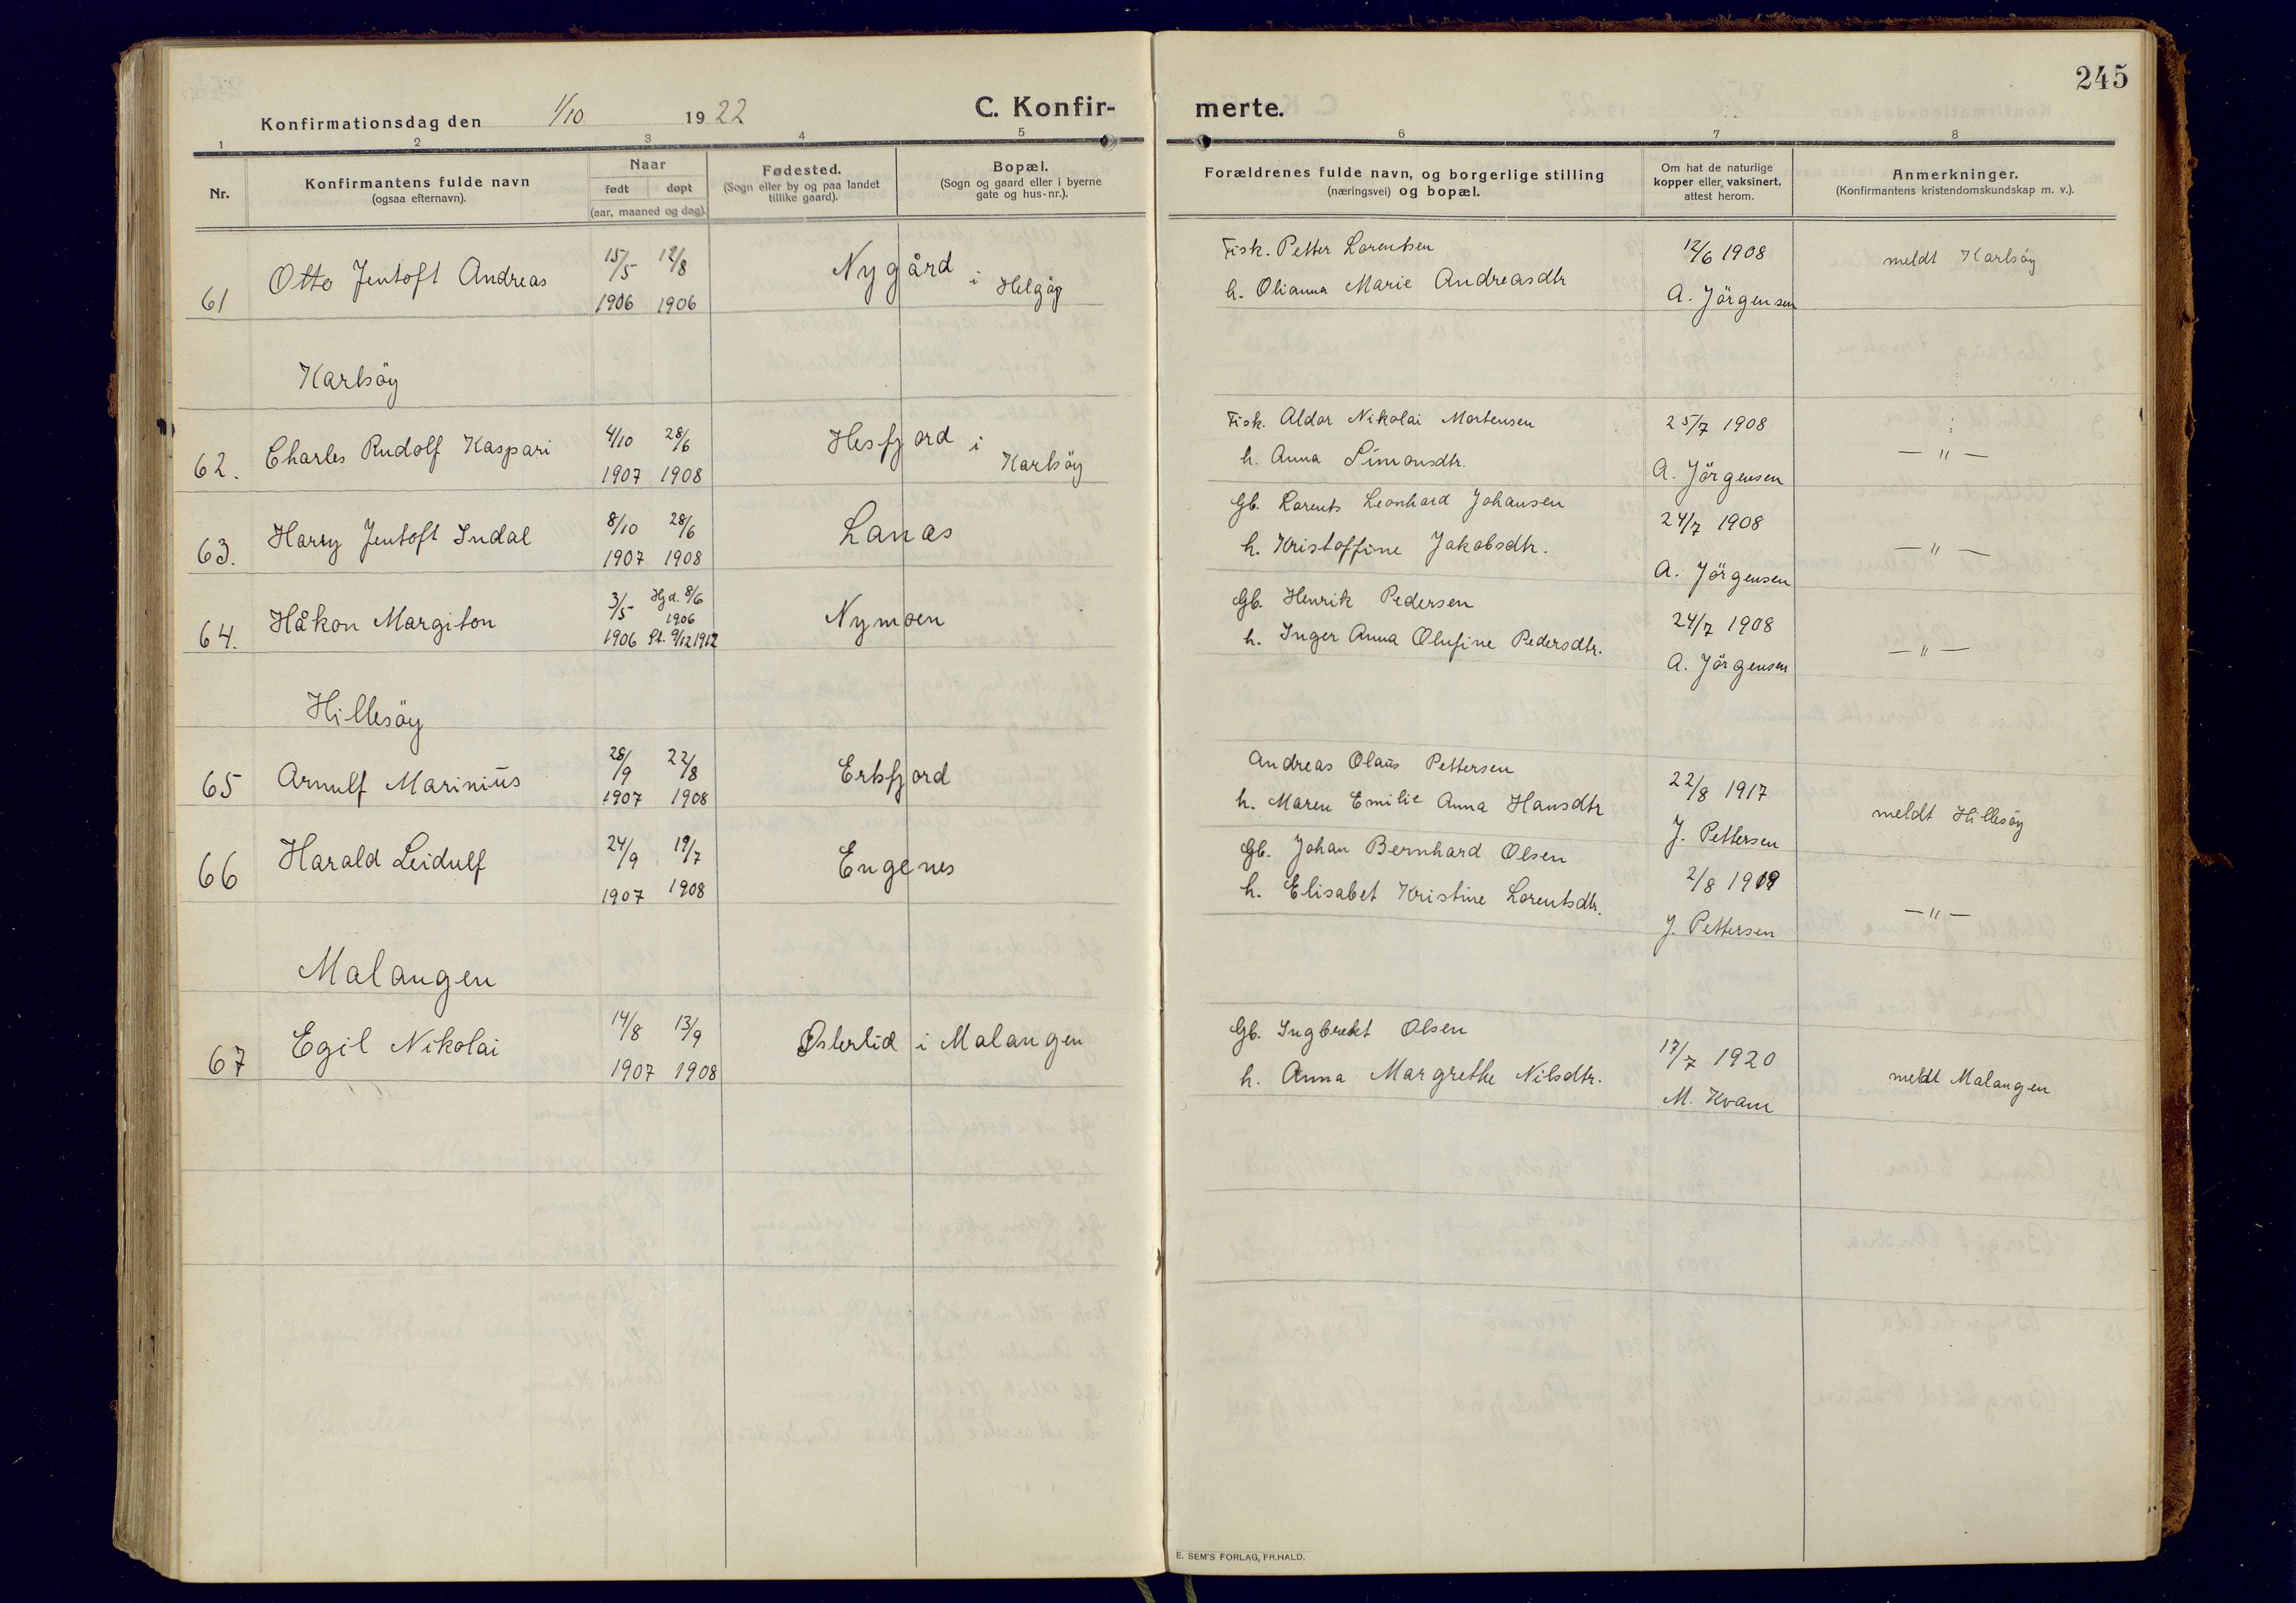 245
Konfirmationsdag den 1/10 1922
C. Konfir-
merte.
1 2 3 4 5 6 7 8
Nr.
Konfirmantens fulde navn
(ogsaa efternavn).
Naar
født døpt
(aar, maaned og dag).
Fødested.
(Sogn eller by og paa landet
tillike gaard).
Bopæl.
(Sogn og gaard eller i byerne
gate og hus-nr.).
Forældrenes fulde navn, og borgerlige stilling
(næringsvei) og bopæl.
Om hat de naturlige
kopper eller vaksinert,
attest herom.
Anmerkninger.
(Konfirmantens kristendomskundskap m. v.).
61 Otto Jentoft Andreas
15/5 12/8
1906 1906
Nygård i Helgöy
Fisk. Petter Lorentsen
h. Olianna Marie Andreasdtr
12/6 1908
A. Jörgensen
meldt Karlsöy
Karlsöy
62. Charles Rudolf Kaspari
4/10 28/6
1907 1908
Hesfjord i Karlsöy
Fisk. Aldor Nikolai Mortensen
h. Anna Simonsdtr.
25/7 1908
A. Jörgensen
— " —
63. Harry Jentoft Indal
8/10 28/6
1907 1908
Lanes
Gb. Lorents Leonhard Johansen
h. Kristoffine Jakobsdtr.
24/7 1908
A. Jörgensen
— " —
64. Håkon Margiton
3/5 Hjd. 8/6
1906
1906 St. 9/12 1912
Nymoen
Gb. Henrik Pedersen
h. Inger Anna Olufine Pedersdtr.
24/7 1908
A. Jörgensen
— " —
Hillesöy
65 Arnulf Marinius
28/9 22/8
1907 1908
Ersfjord
Andreas Olaus Pettersen
h. Maren Emilie Anna Hansdtr
22/8 1917
J. Pettersen
meldt Hillesöy
66 Harald Leidulf
24/9 19/7
1907 1908
Engenes
Gb. Johan Bernhard Olsen
h. Elisabet Kristine Lorentsdtr.
2/8 1919
J. Pettersen
— " —
Malangen
67 Egil Nikolai
14/8 13/9
1907 1908
Østerlid i Malangen
Gb. Ingbrekt Olsen
h. Anna Margrethe Nilsdtr.
17/7 1920
M. Kvam
meldt Malangen
E. SEM'S FORLAG, FR.HALD.